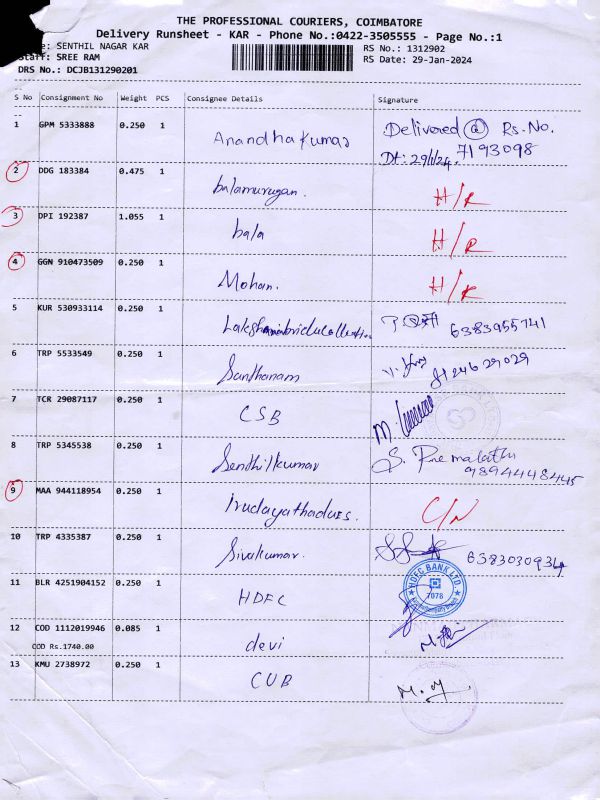 THE PROFESSIONAL COURIERS, COIMBATORE
Delivery Runsheet - KAR - Phone No.:0422-3505555 - Page No.:1
e: SENTHIL NAGAR KAR
RS No.: 1312902
Staff: SREE RAM
RS Date: 29-Jan-2024
DRS No.: DCJB131290201
S No Consignment No Weight PCS Consignee Details Signature
1 GPM 5333888 0.250 1 Anandhakumar Delivered @ Rs.No.
Dt: 29/1/24. 7193098
2 DDG 183384 0.475 1 balamurugan. H/R
3 DPI 192387 1.055 1 bala H/R
4 GGN 910473509 0.250 1 Mohan. H/R
5 KUR 530933114 0.250 1 6383955741
6 TRP 5533549 0.250 1 Santhanam
7 TCR 29087117 0.250 1 CSB
8 TRP 5345538 0.250 1 Senthilkumar S. Premalatha
98944448445
9 MAA 944118954 0.250 1 C/N
10 TRP 4335387 0.250 1 Sivakumar. 6383030934
11 BLR 4251904152 0.250 1 HDFC
HDFC BANK LTD.
7078
12 COD 1112019946 0.085 1 devi
COD Rs.1740.00
13 KMU 2738972 0.250 1 CUB